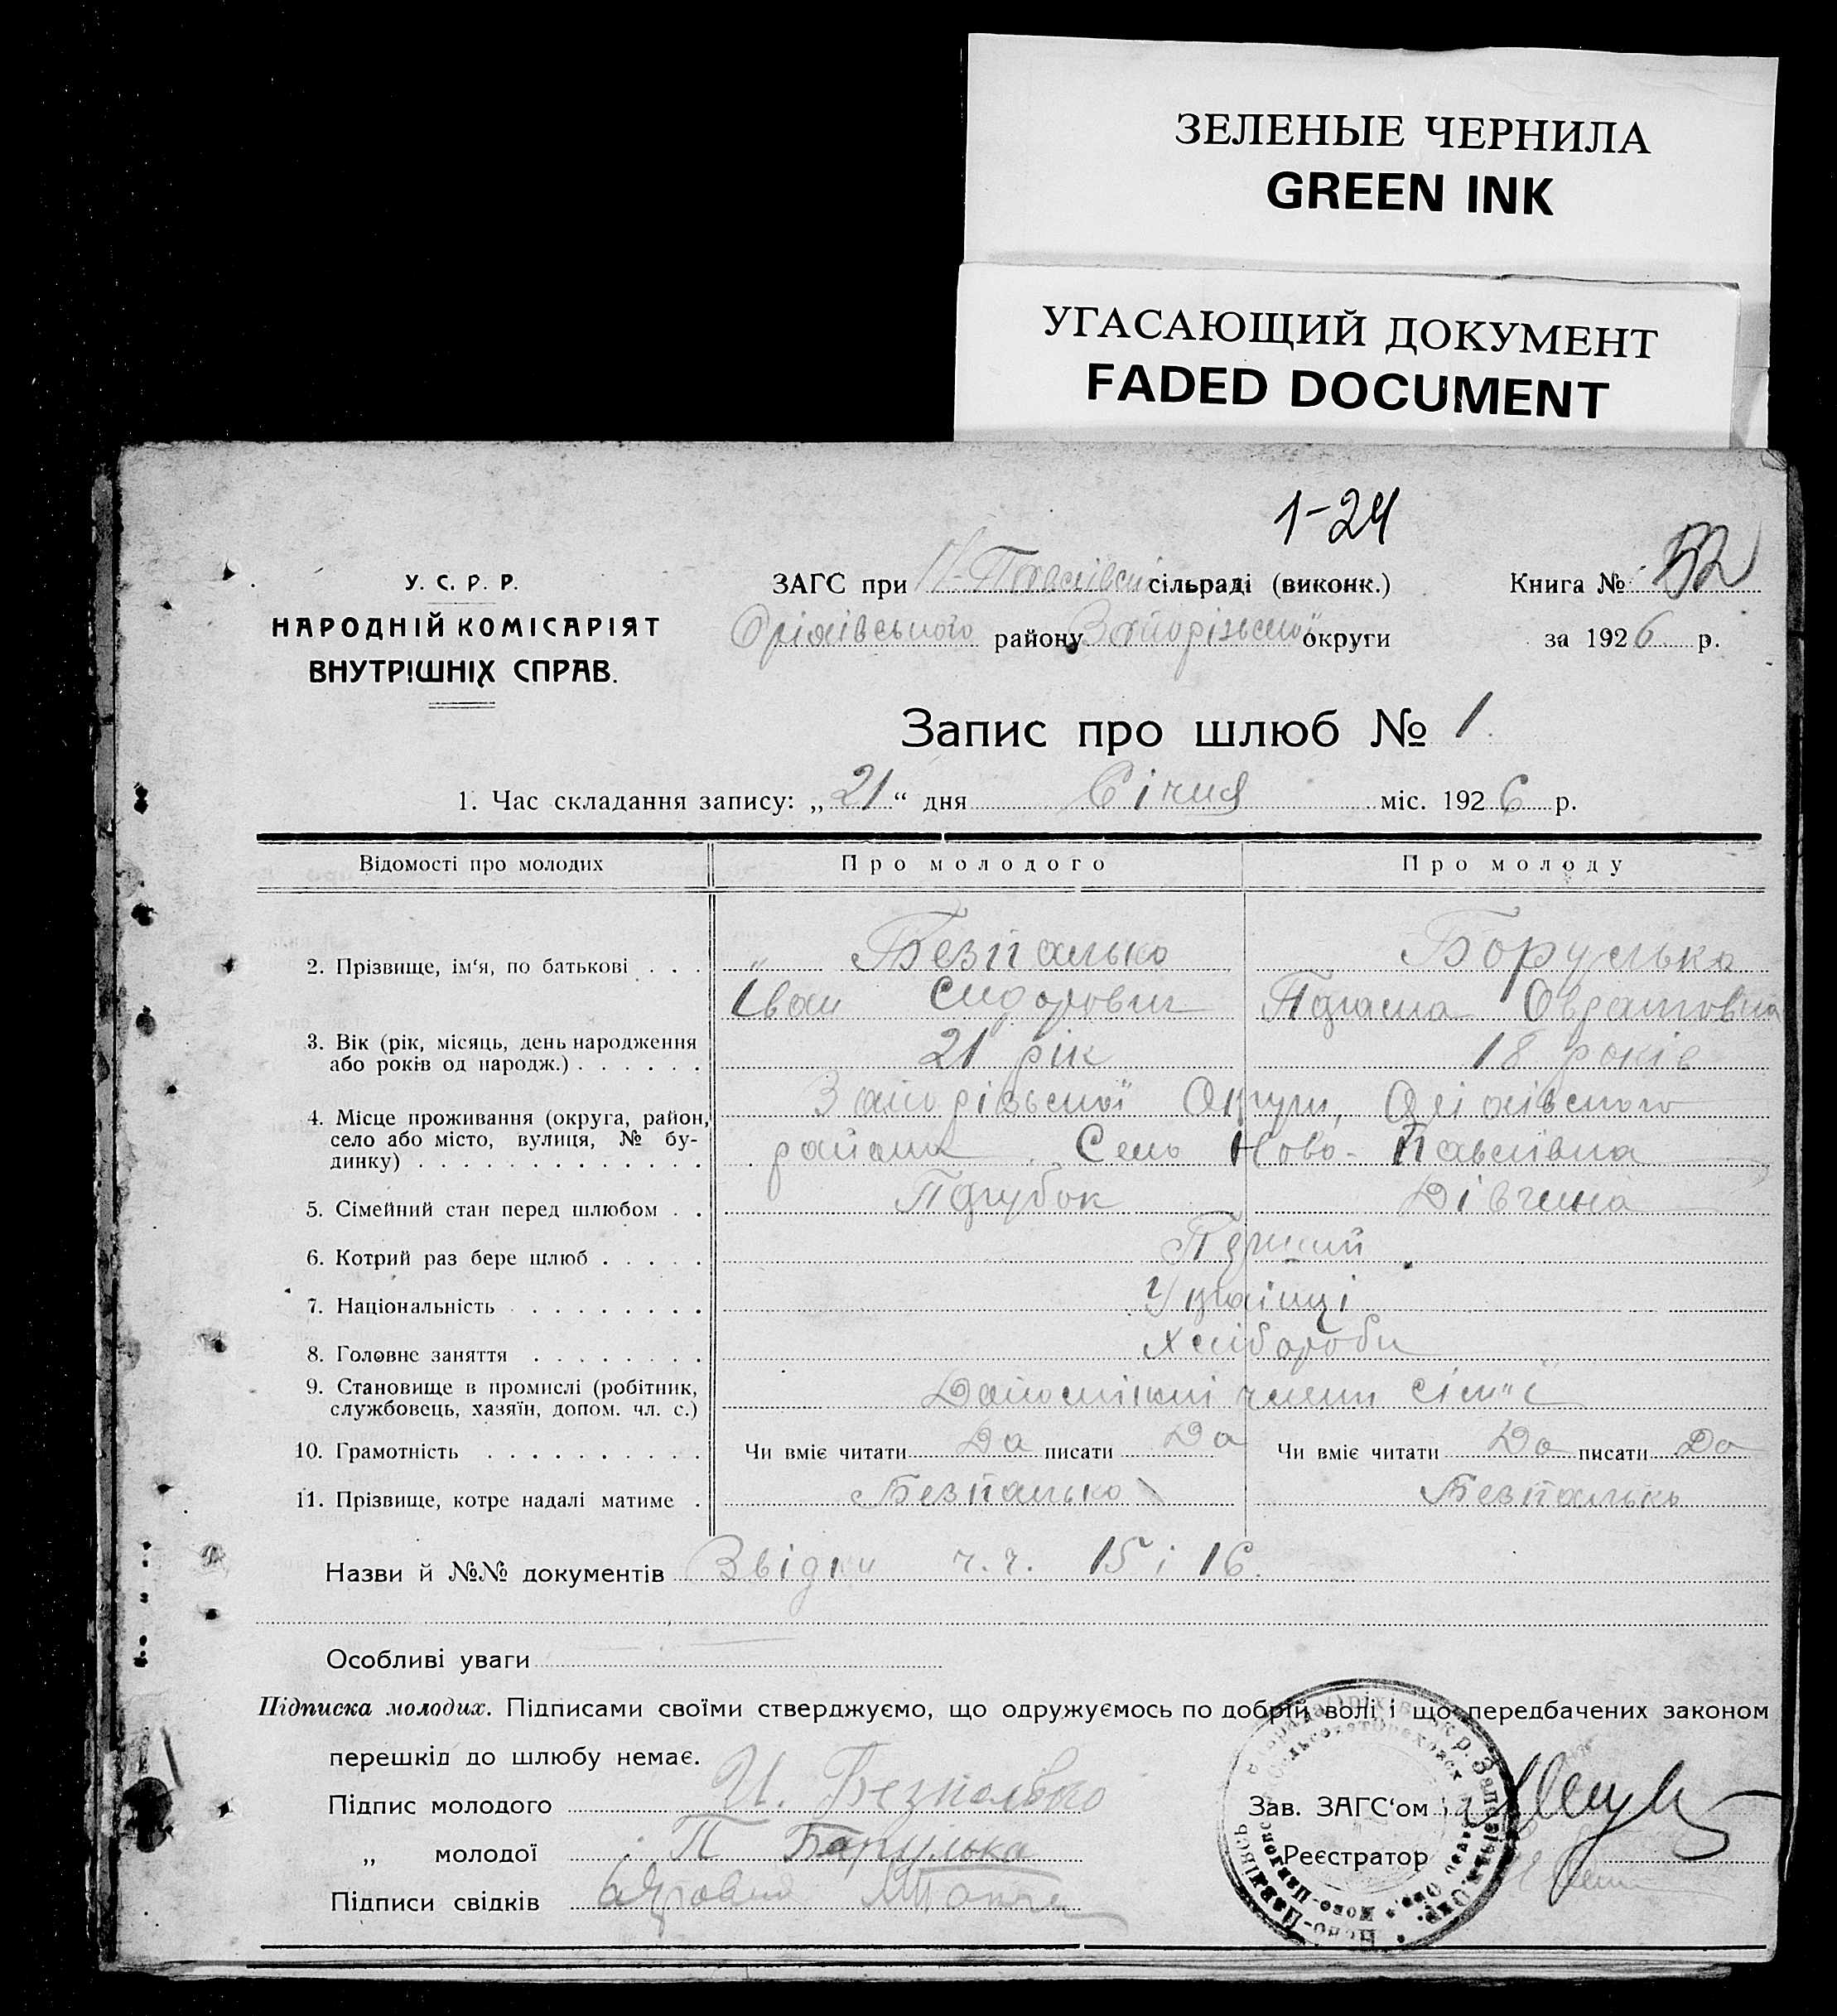 ЗЕЛЕНЫЕ ЧЕРНИЛА
GREEN INK
УГАСАЮЩИЙ ДОКУМЕНТ
FADED DOCUMENT
1-24
У. С. Р. Р.
НАРОДНІЙ КОМІСАРІЯТ
ВНУТРІШНІХ СПРАВ.
ЗАГС при Н-Павлівськ сільраді (виконк.) Книга № 52
Оріхівського району Запорізської округи за 1926 р.
Запис про шлюб № 1.
1. Час складання запису: „21“ дня Січня міс. 1926 р.
Відомості про молодих Про молодого Про молоду
2. Прізвище, ім‘я, по батькові . . . „ Безпалько Борулька
Іван Сидорович
3. Вік (рік, місяць, день народження
або років од народж.) . . . . . . 21 рік 18 років
Запорізської Округи, Оріхівського
4. Місце проживання (округа, район,
село або місто, вулиця, № бу-
динку) . . . . . . . . . . . . . району Село Ново-Павлівка
5. Сімейний стан перед шлюбом . . Парубок Дівчина
6. Котрий раз бере шлюб . . . . . Перший
7. Національність . . . . . . . . Українці
8. Головне заняття . . . . . . . . Хлібороби
9. Становище в промислі (робітник,
службовець, хазяїн, допом. чл. с.) Допомішні члени сім'ї
10. Грамотність . . . . . . . . . . Чи вміє читати Да писати Да Чи вміє читати Да писати Да
11. Прізвище, котре надалі матиме . Безпалько Безпалько
Назви й №№ документів Звідки ч.ч. 15 і 16.
Особливі уваги
Підписка молодих. Підписами своїми стверджуємо, що одружуємось по добрій волі і що передбачених законом
перешкід до шлюбу немає.
Підпис молодого И. Безпалько
Зав. ЗАГС‘ом
„ молодої П Борулька
Реєстратор
Підписи свідків